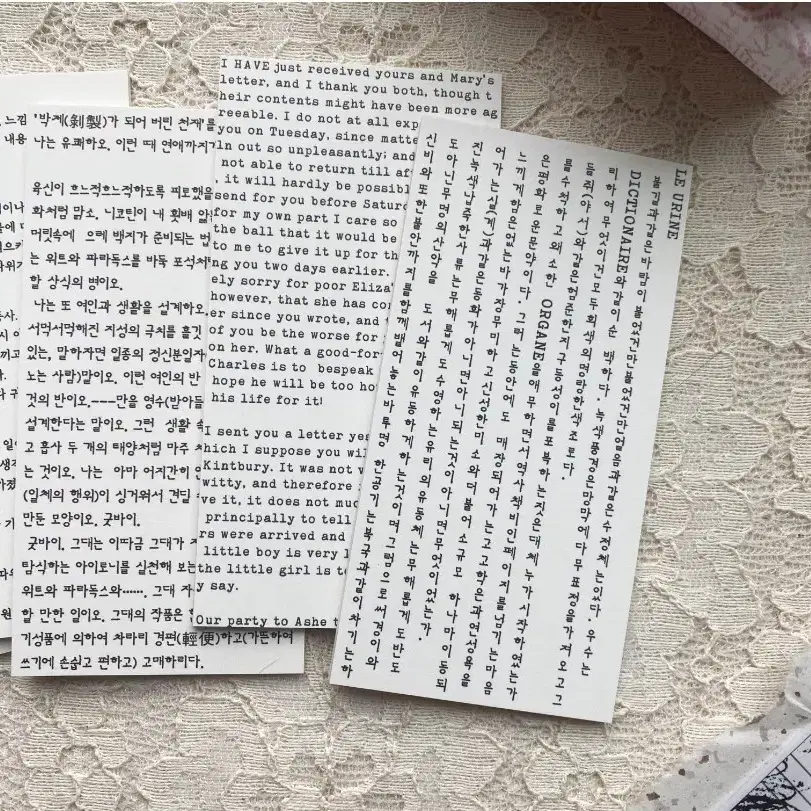 느낌
내용
'박제(剝製)가 되어 버린 천재'를
나는 유쾌하오. 이런 때 연애까지가
육신이 흐느적흐느적하도록 피로했을
화처럼 맑소. 니코틴이 내 횟배 앓
머릿속에 으레 백지가 준비되는 법
는 위트와 파라독스를 바둑 포석처럼
할 상식의 병이오.
나는 또 여인과 생활을 설계하오.
서먹서먹해진 지성의 극치를 흘깃
있는, 말하자면 일종의 정신분일자
노는 사람)말이오. 이런 여인의 반
것의 반이오.---만을 영수(받아들
설계한다는 말이오. 그런 생활 속
고 흡사 두 개의 태양처럼 마주 쳐
는 것이오. 나는 아마 어지간히
(일체의 행위)이 싱거워서 견딜
만둔 모양이오. 굿바이.
굿바이. 그대는 이따금 그대가 제
탐식하는 아이로니를 실천해 보는
위트와 파라독스와...... 그대 자
할 만한 일이오. 그대의 작품은 한
기성품에 의하여 차라리 경편(輕便)하고(가뜬하여
쓰기에 손쉽고 편하고) 고매하리다.
I HAVE just received yours and Mary's
letter, and I thank you both, though t
heir contents might have been more ag
reeable. I do not at all exp
you on Tuesday, since matte
ln out so unpleasantly; and
not able to return till aft
, it will hardly be possibl
send for you before Satur
for my own part I care so
the ball that it would be
to me to give it up for th
ng you two days earlier.
ely sorry for poor Eliza
however, that she has co
er since you wrote, and
of you be the worse for
on her. What a good-for-
Charles is to bespeak
hope he will be too ho
his life for it!
I sent you a letter yes
hich I suppose you wil
Kintbury. It was not v
witty, and therefore i
ve it, it does not muc
principally to tell
rs were arrived and
little boy is very l
the little girl is to
y say.
Our party to Ashe t
LE URINE
불길과같은바람이불었건만불었건만얼음과같은수정체는있다. 우수는
DICTIONAIRE와같이순 백하다. 녹색풍경은망막에다무표정을가져오고그
리하여무엇이건모두회색의명랑한색조로다.
들쥐(야서)와같은험준한지구등성이를포복하는짓은대체누가시작하였는가
를수척하고왜소한 ORGANE을애무하면서역사책비인페이지를넘기는마음
은평화로운문약이다. 그러는동안에도 매장되어가는고고학은과연성욕을
느끼게함은없는바가장무미하고신성한미소와더불어소규모 하나마이동되
어가는실(계)과같은동화가아니면아니되는것이아니면무엇이었는가.
진녹색납죽한사류는무해롭게도수영하는유리의유동체는무해롭게도반도
도아닌무명의산악을 도서와같이유동하게하는것이며그럼으로써경이와
신비와또한불안까지를함께뱉어놓는바투명 한공기는북국과같이차기는하